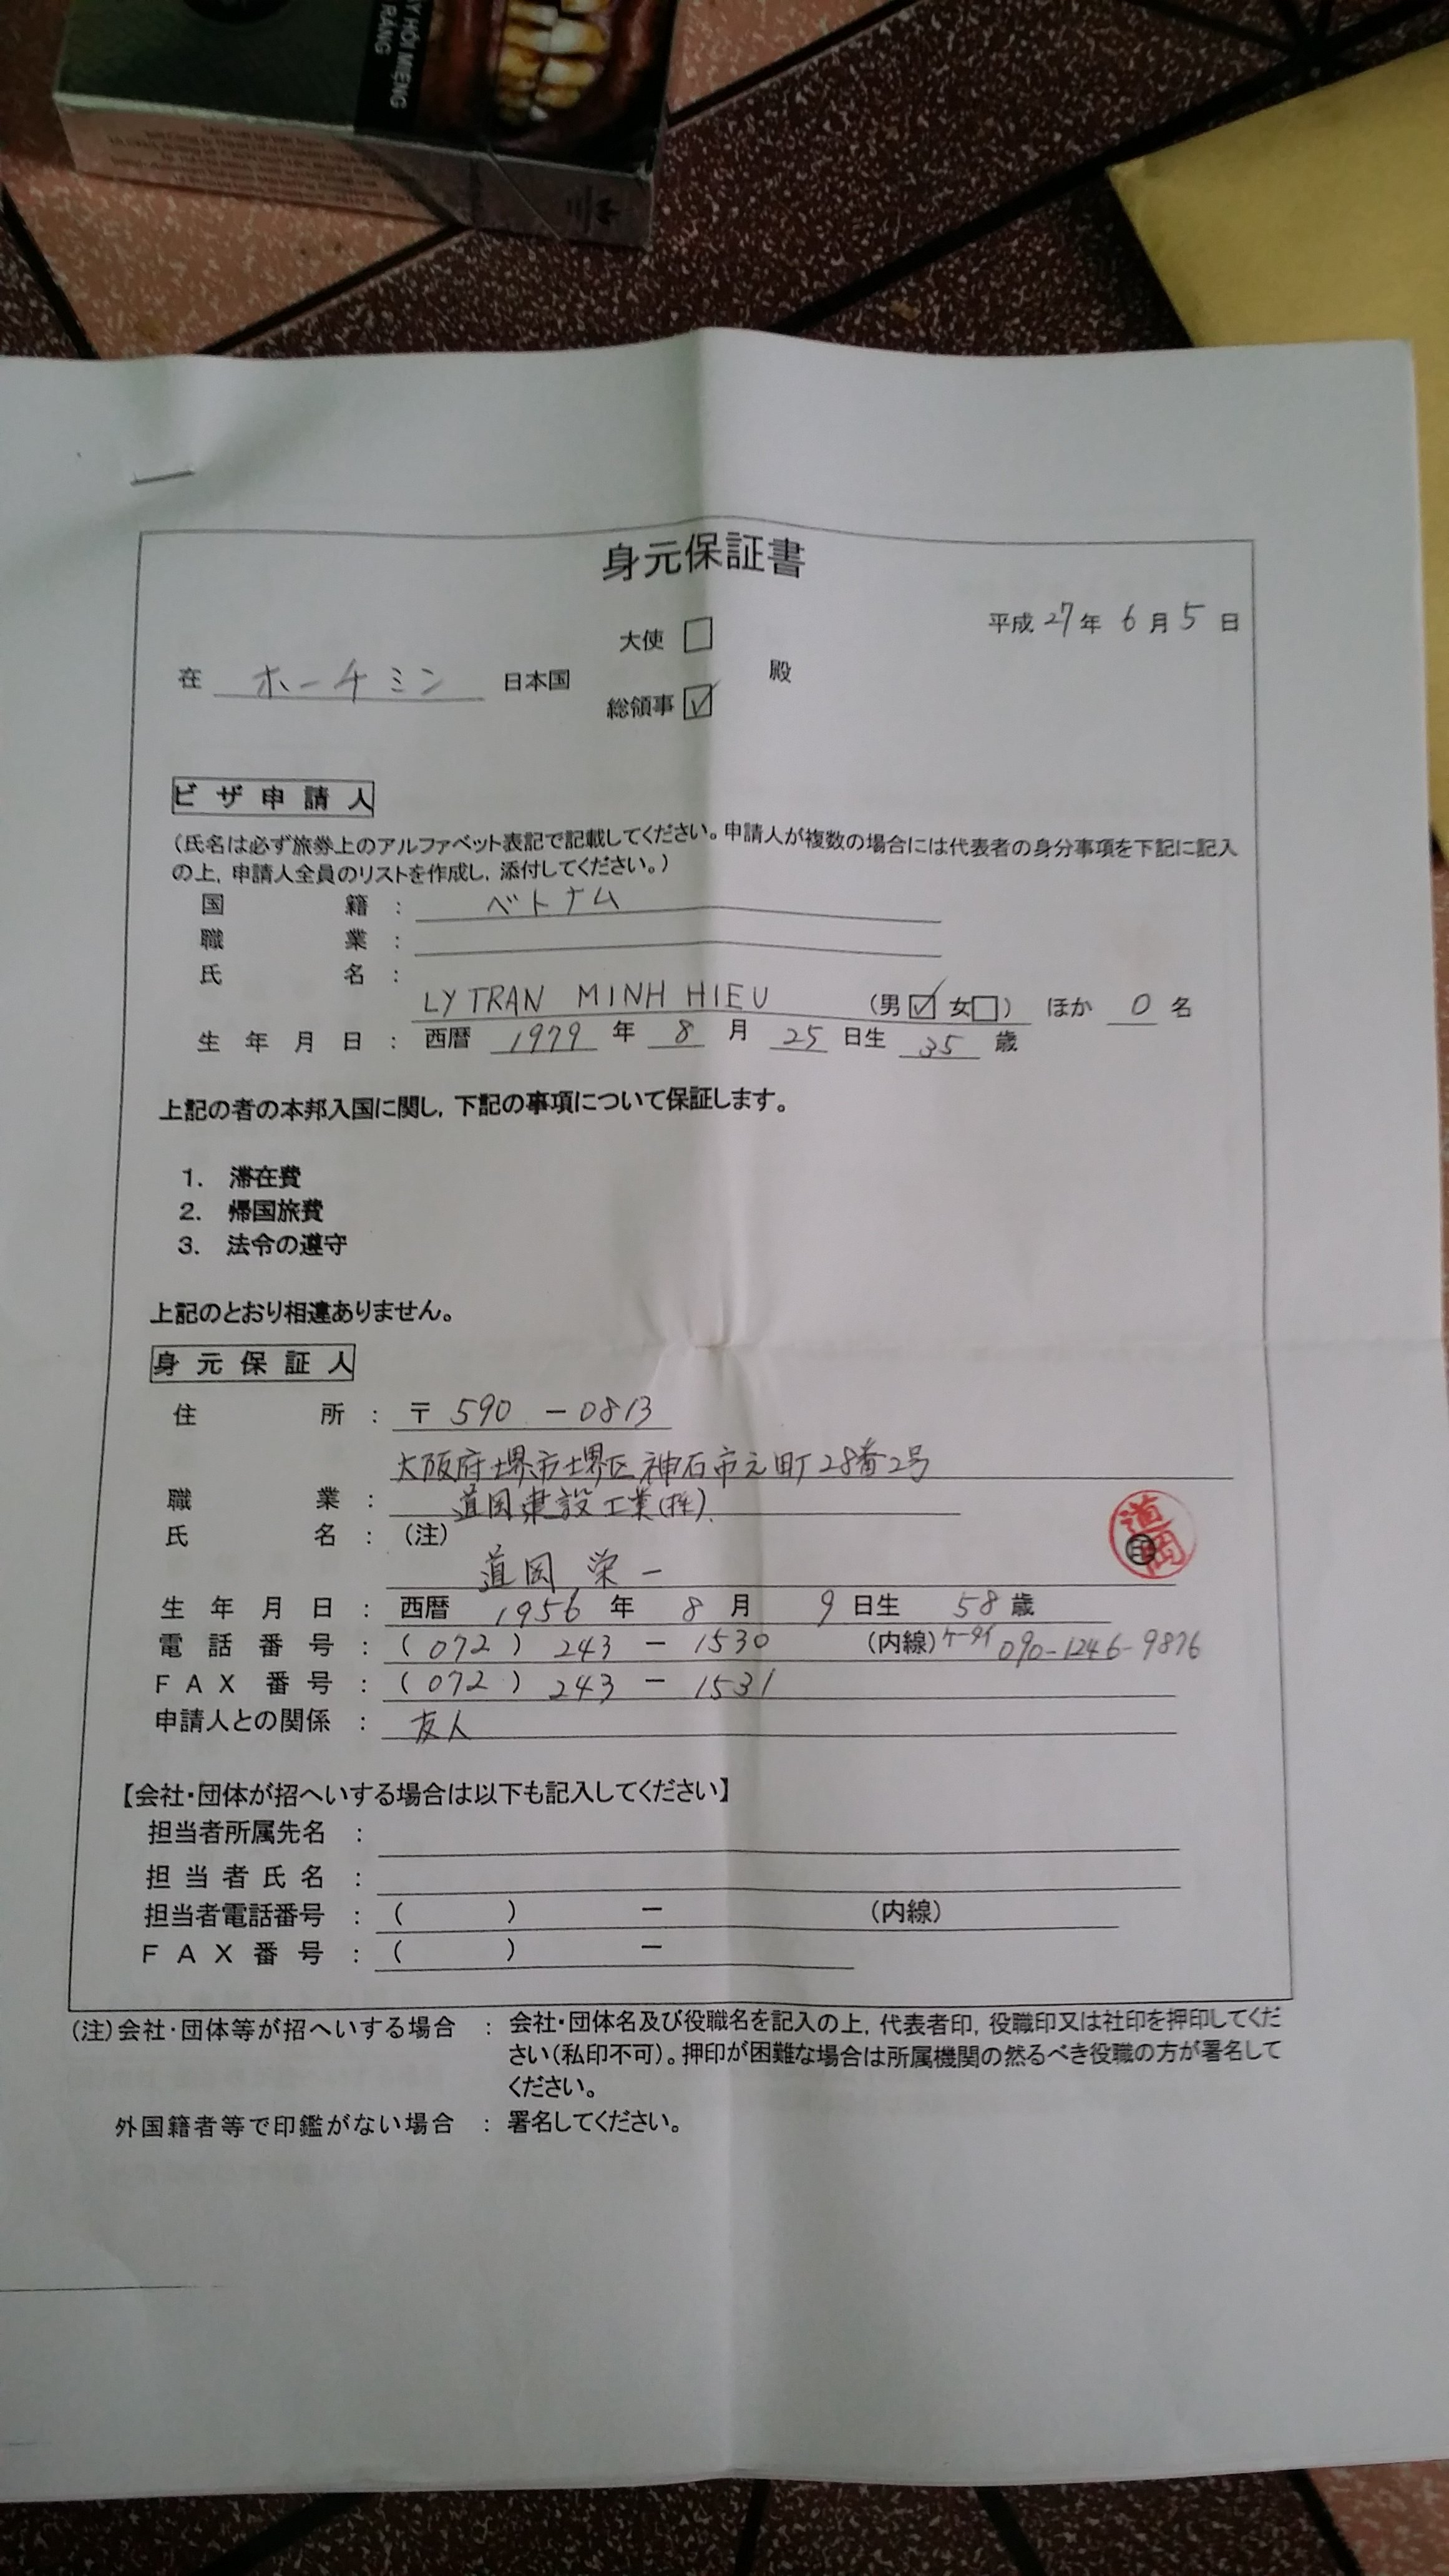 Y HÔI MIỆNG
RĂNG
身元保証書
平成27年 6月5日
大使 □
在 ホーチミン 日本国 殿
総領事 ☑
ビザ申請人
（氏名は必ず旅券上のアルファベット表記で記載してください。申請人が複数の場合には代表者の身分事項を下記に記入
の上，申請人全員のリストを作成し，添付してください。）
国籍： ベトナム
職業：
氏名：
LY TRAN MINH HIEU （男☑ 女□） ほか 0 名
生年月日： 西暦 1979 年 8 月 25 日生 35 歳
上記の者の本邦入国に関し，下記の事項について保証します。
1. 滞在費
2. 帰国旅費
3. 法令の遵守
上記のとおり相違ありません。
身元保証人
住所： 〒590-0813
大阪府堺市堺区神石市之町28番2号
職業： 道岡建設工業(株)
氏名：（注）
道岡 栄一 ㊞ 道岡
生年月日： 西暦 1956 年 8 月 9 日生 58 歳
電話番号：（072）243-1530 （内線）ケータイ 090-1246-9876
FAX番号：（072）243-1531
申請人との関係： 友人
【会社・団体が招へいする場合は以下も記入してください】
担当者所属先名：
担当者氏名：
担当者電話番号：（ ） － （内線）
FAX番号：（ ） －
（注）会社・団体等が招へいする場合：会社・団体名及び役職名を記入の上，代表者印，役職印又は社印を押印してくだ
さい（私印不可）。押印が困難な場合は所属機関の然るべき役職の方が署名して
ください。
外国籍者等で印鑑がない場合：署名してください。